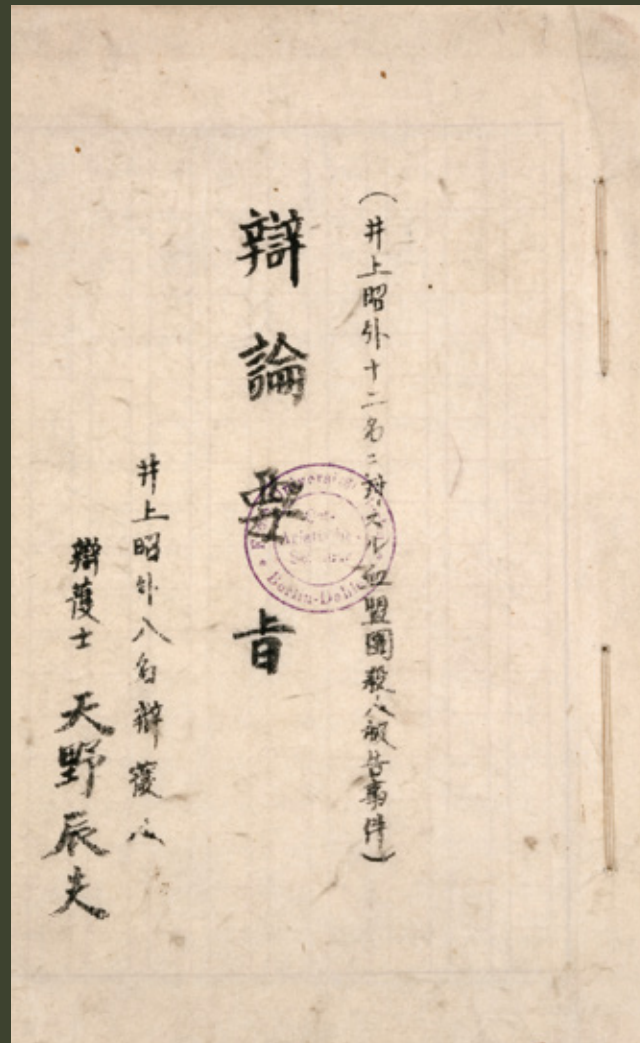 (井上昭外十二名ニ対スル血盟團殺人被告事件)
辯論要旨
井上昭外八名辯護人
辯護士 天野辰夫
Universität
Seminar
Berlin-Dahlem